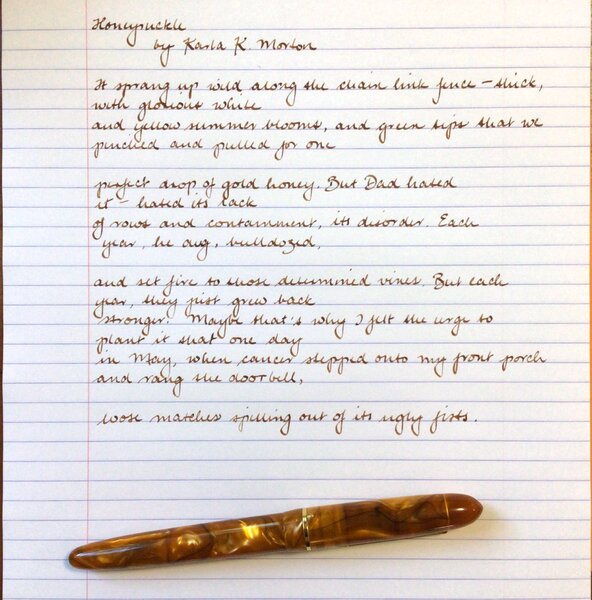 Honeysuckle
by Karla K. Morton
It sprang up wild along the chain link fence - thick,
with glorious white
and yellow summer blooms, and green tips that we
pinched and pulled for one
perfect drop of gold honey. But Dad hated
it - hated its lack
of rows and containment, its disorder. Each
year, he dug, bulldozed,
and set fire to those determined vines. But each
year, they just grew back
stronger. Maybe that's why I felt the urge to
plant it that one day
in May, when cancer stepped onto my front porch
and rang the doorbell,
loose matches spilling out of its ugly fists.